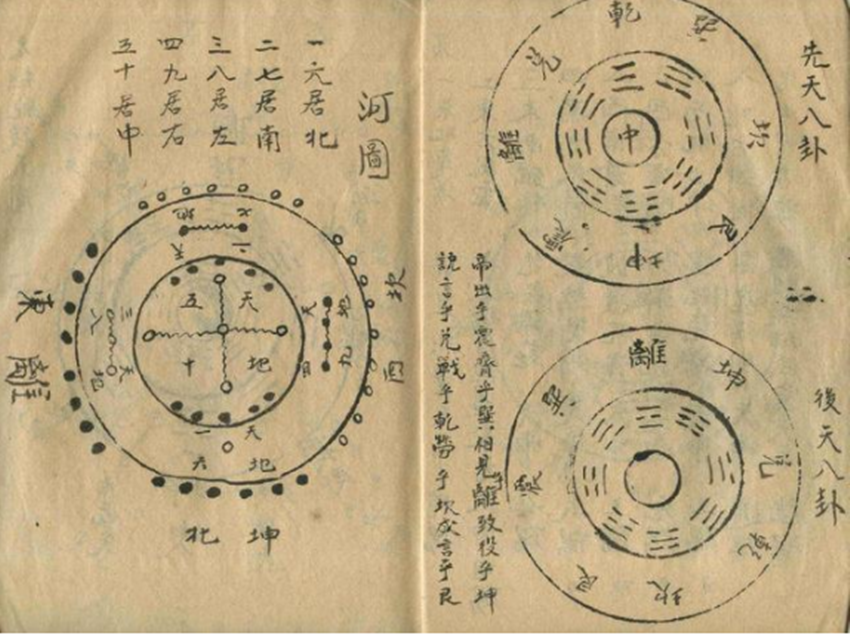 先天八卦
乾
巽
坎
艮
坤
震
離
兌
中
後天八卦
離
坤
兌
乾
坎
艮
震
巽
帝出乎震齊乎巽相見乎離致役乎坤
說言乎兌戰乎乾勞乎坎成言乎艮
河圖
一六居北
二七居南
三八居左
四九居右
五十居中
地七
天二
天五
地十
地九
天四
天三
地八
天一
地六
坎西
東離
北坤